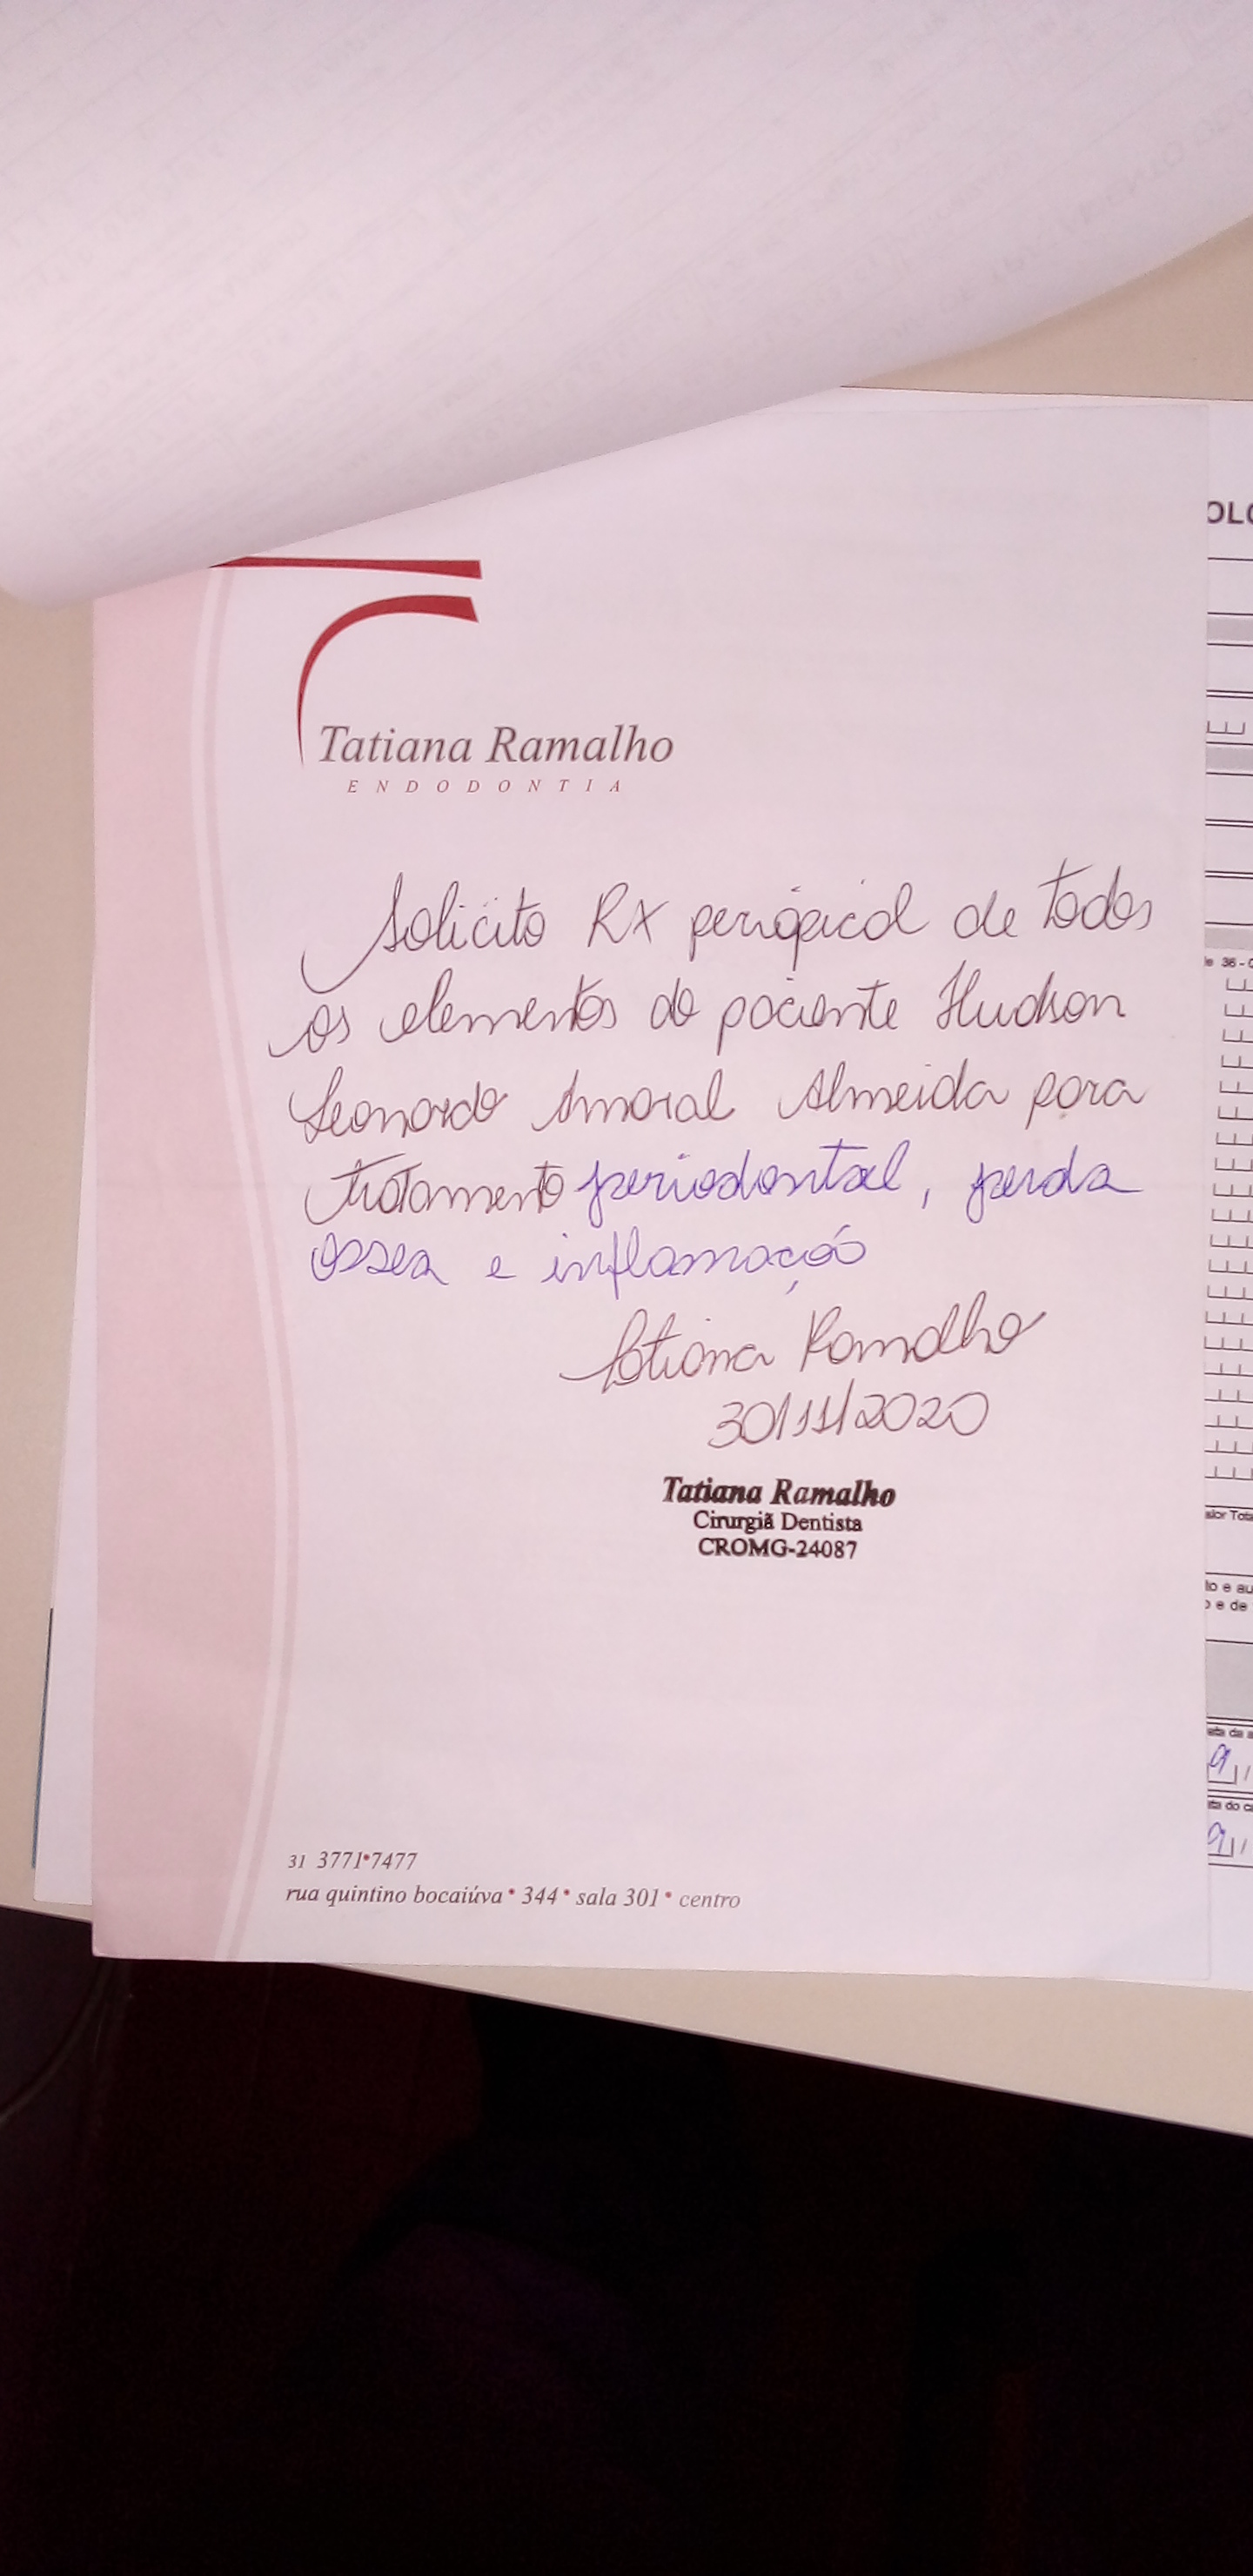 Tatiana Ramalho
ENDODONTIA
Solicito RX periapical de todos
os elementos do paciente Hudson
Leonardo Amaral Almeida para
tratamento periodontal, perda
óssea e inflamação
Tatiana Ramalho
30/11/2020
Tatiana Ramalho
Cirurgiã Dentista
CROMG-24087
31 3771•7477
rua quintino bocaiúva • 344 • sala 301 • centro
OLO
36 - C
alor Tota
to e au
o e de
ata da a
ata do c